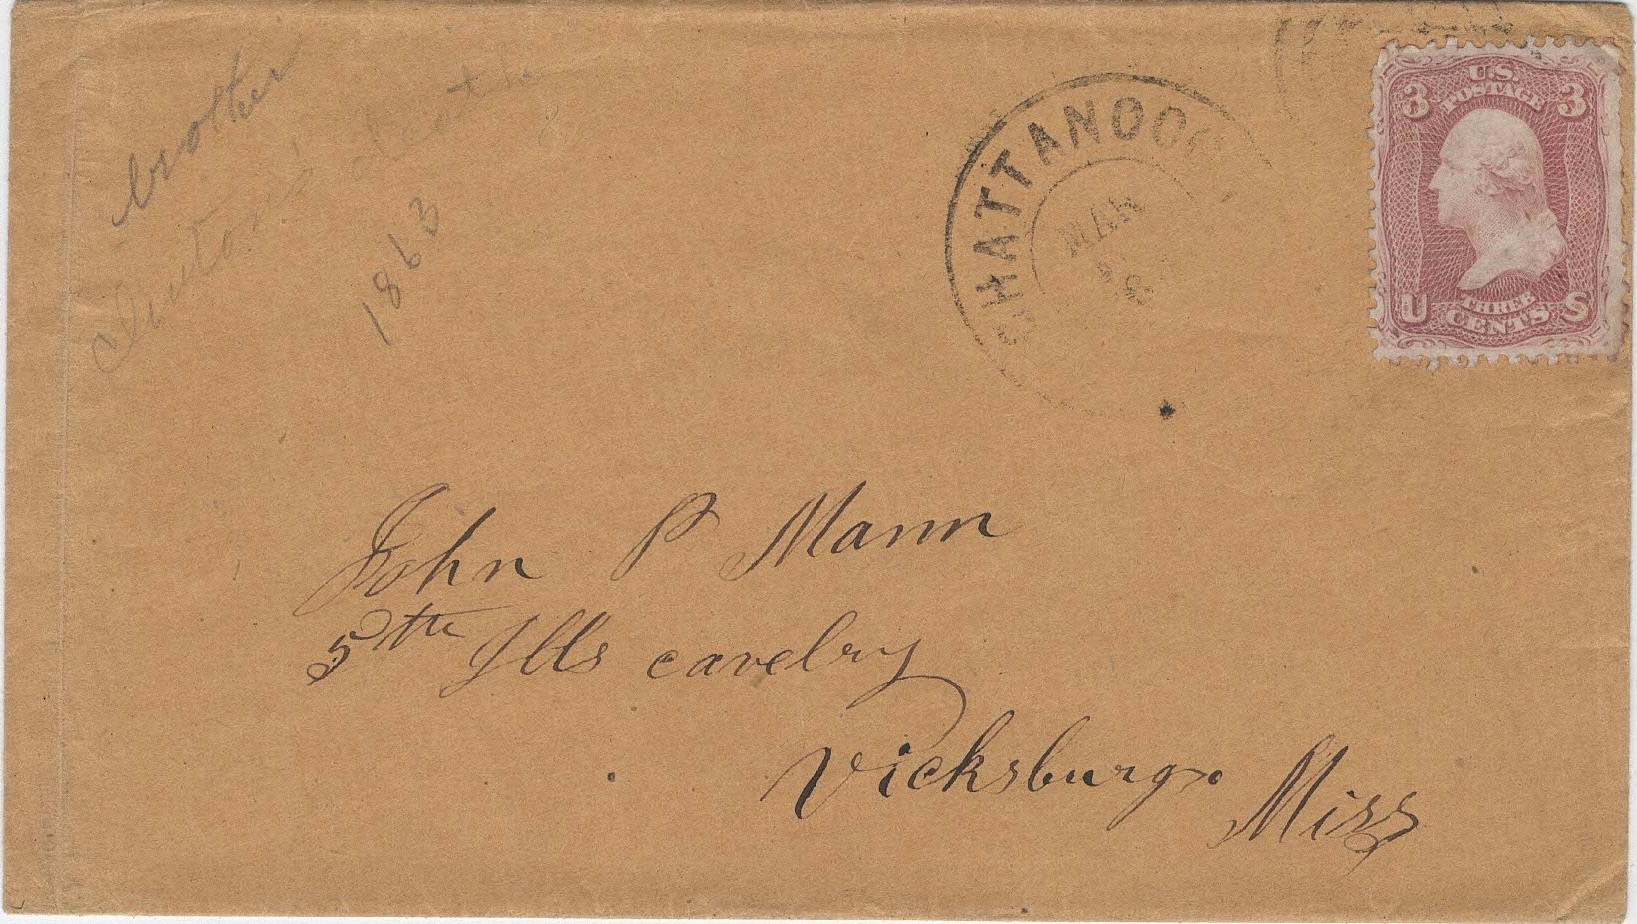 brother
Newton's death
1863
CHATTANOOG
MAR
8
3 U.S. 3
POSTAGE
THREE
U CENTS S
John P Mann
5th Ills cavelry
Vicksburg. Miss